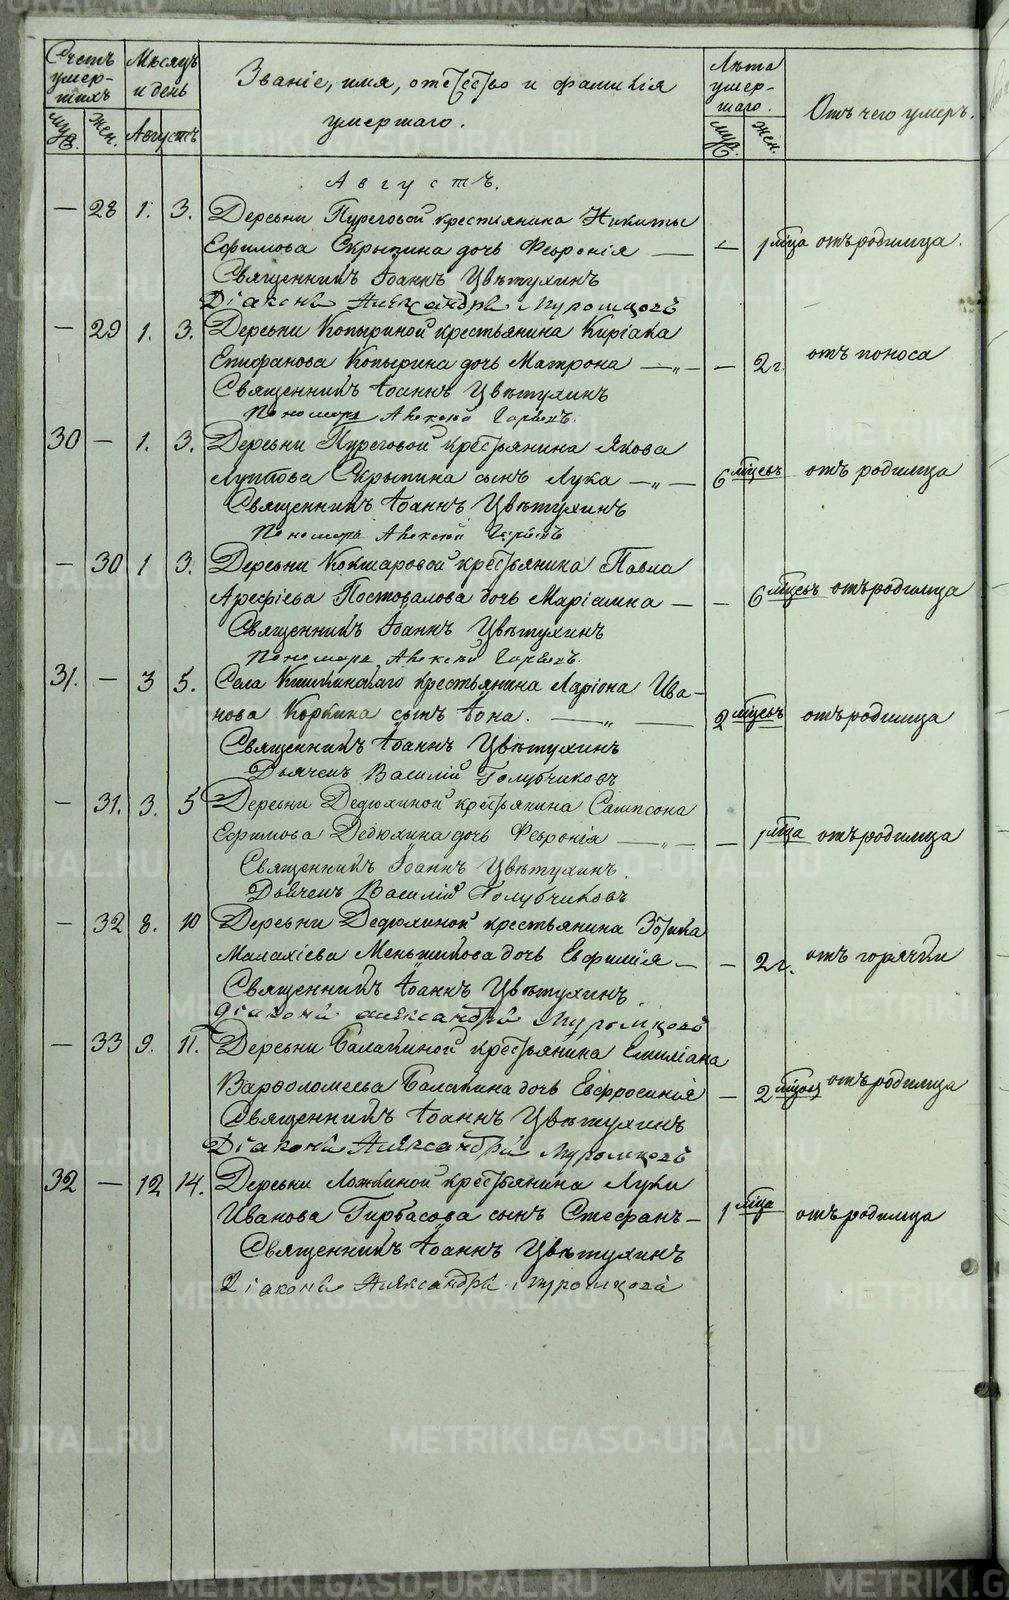 Счетъ умер-шихъ Мѣсяцъ и день Званіе, имя, отчество и фамилія умершаго. Лѣта умер-шаго. Отъ чего умеръ.
муж. жен. Августъ муж. жен.
Августъ.
— 28 1. 3. Деревни Пуреговой крестьянина Никиты
Ефимова Скрыпина дочь Феѵронія — — 1 мѣца отъ родимца.
Священникъ Іоаннъ Цвѣтухинъ
Діаконъ Александръ Муромцовъ
— 29 1. 3. Деревни Копыриной крестьянина Киріака
Епифанова Копырина дочь Матрона —„— — 2 г. отъ поноса
Священникъ Іоаннъ Цвѣтухинъ
Пономарь Алексѣй
30 — 1. 3. Деревни Пуреговой крестьянина Якова
Луппова Скрыпина сынъ Лука —„— 6 мѣсецъ отъ родимца
Священникъ Іоаннъ Цвѣтухинъ
Пономарь Алексѣй
— 30 1 3. Деревни Кокшаровой крестьянина Павла
Арефіева Постовалова дочь Маріамна — — 6 мѣсецъ отъ родимца
Священникъ Іоаннъ Цвѣтухинъ
Пономарь Алексѣй
31. — 3 5. Села Кишкинскаго крестьянина Ларіона Ива-
нова Коркина сынъ Іона. —„— 2 мѣсецъ отъ родимца
Священникъ Іоаннъ Цвѣтухинъ
Дьячекъ Василій Голубчиковъ
— 31. 3. 5 Деревни Дедюхиной крестьянина Сампсона
Ефимова Дедюхина дочь Феѵронія —„— — 1 мѣца отъ родимца
Священникъ Іоаннъ Цвѣтухинъ.
Дьячекъ Василій Голубчиковъ
— 32 8. 10 Деревни Дедюхиной крестьянина Зотика
Малахіева Меньшикова дочь Евфимія — — 2 г. отъ горячки
Священникъ Іоаннъ Цвѣтухинъ.
Діаконъ Александръ Муромцовъ
— 33 9. 11. Деревни Балакиной крестьянина Емиліана
Варѳоломеева Балакина дочь Евфросинія — 2 мѣсец отъ родимца
Священникъ Іоаннъ Цвѣтухинъ
Діаконъ Александръ Муромцовъ
32 — 12 14. Деревни Ложкиной крестьянина Луки
Иванова Гирбасова сынъ Стефанъ — 1 мѣца отъ родимца
Священникъ Іоаннъ Цвѣтухинъ
Діаконъ Александръ Муромцовъ
METRIKI.GASO-URAL.RU